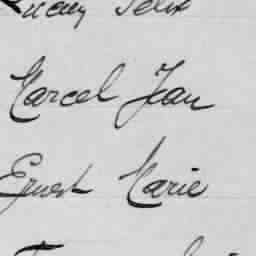 Félix
Marcel Jean
Ernest Marie